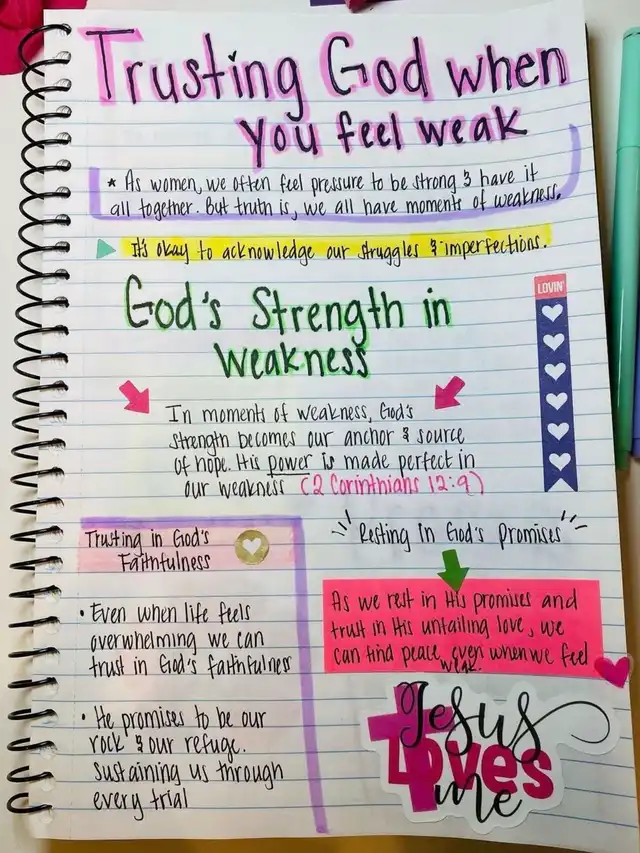 Trusting God when
you feel weak
* As women, we often feel pressure to be strong & have it
all together. But truth is, we all have moments of weakness.
It's okay to acknowledge our struggles & imperfections.
God's Strength in
Weakness
LOVIN'
In moments of weakness, God's
strength becomes our anchor & source
of hope. His power is made perfect in
our weakness (2 Corinthians 12:9)
Trusting in God's
Faithfulness
• Even when life feels
overwhelming we can
trust in God's faithfulness
• He promises to be our
rock & our refuge.
Sustaining us through
every trial
Resting in God's Promises
As we rest in His promises and
trust in His unfailing love, we
can find peace, even when we feel
weak.
Jesus
Loves
me